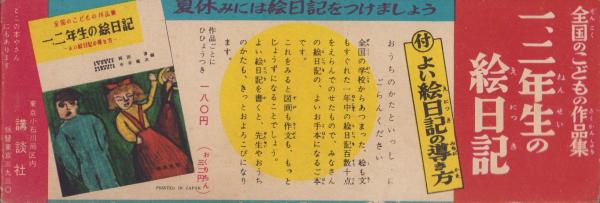 全国のこどもの作品集
一、二年生の
絵日記
付 よい絵日記の導き方
おうちのかたといっしょに
ごらんください
全国の学校からあつまった、絵も文
もすぐれた一年中の絵日記百数十点
をえらんでのせたもので、みなさん
の絵日記の、よいお手本になるご本
です。
これをみると図画も作文も、もっと
じょうずになることでしょう。
よい絵日記を書くと、先生やおうち
のかたも、きっとおよろこびになり
ます。
作品ごとに
ひひょうつき
一八〇円
(おくりちん 三二円)
夏休みには絵日記をつけましょう
全国のこどもの作品集
一、二年生の絵日記
PRINTED IN JAPAN
どこの本やさん
にもあります
東京小石川局区内
講談社
振替東京三九三〇